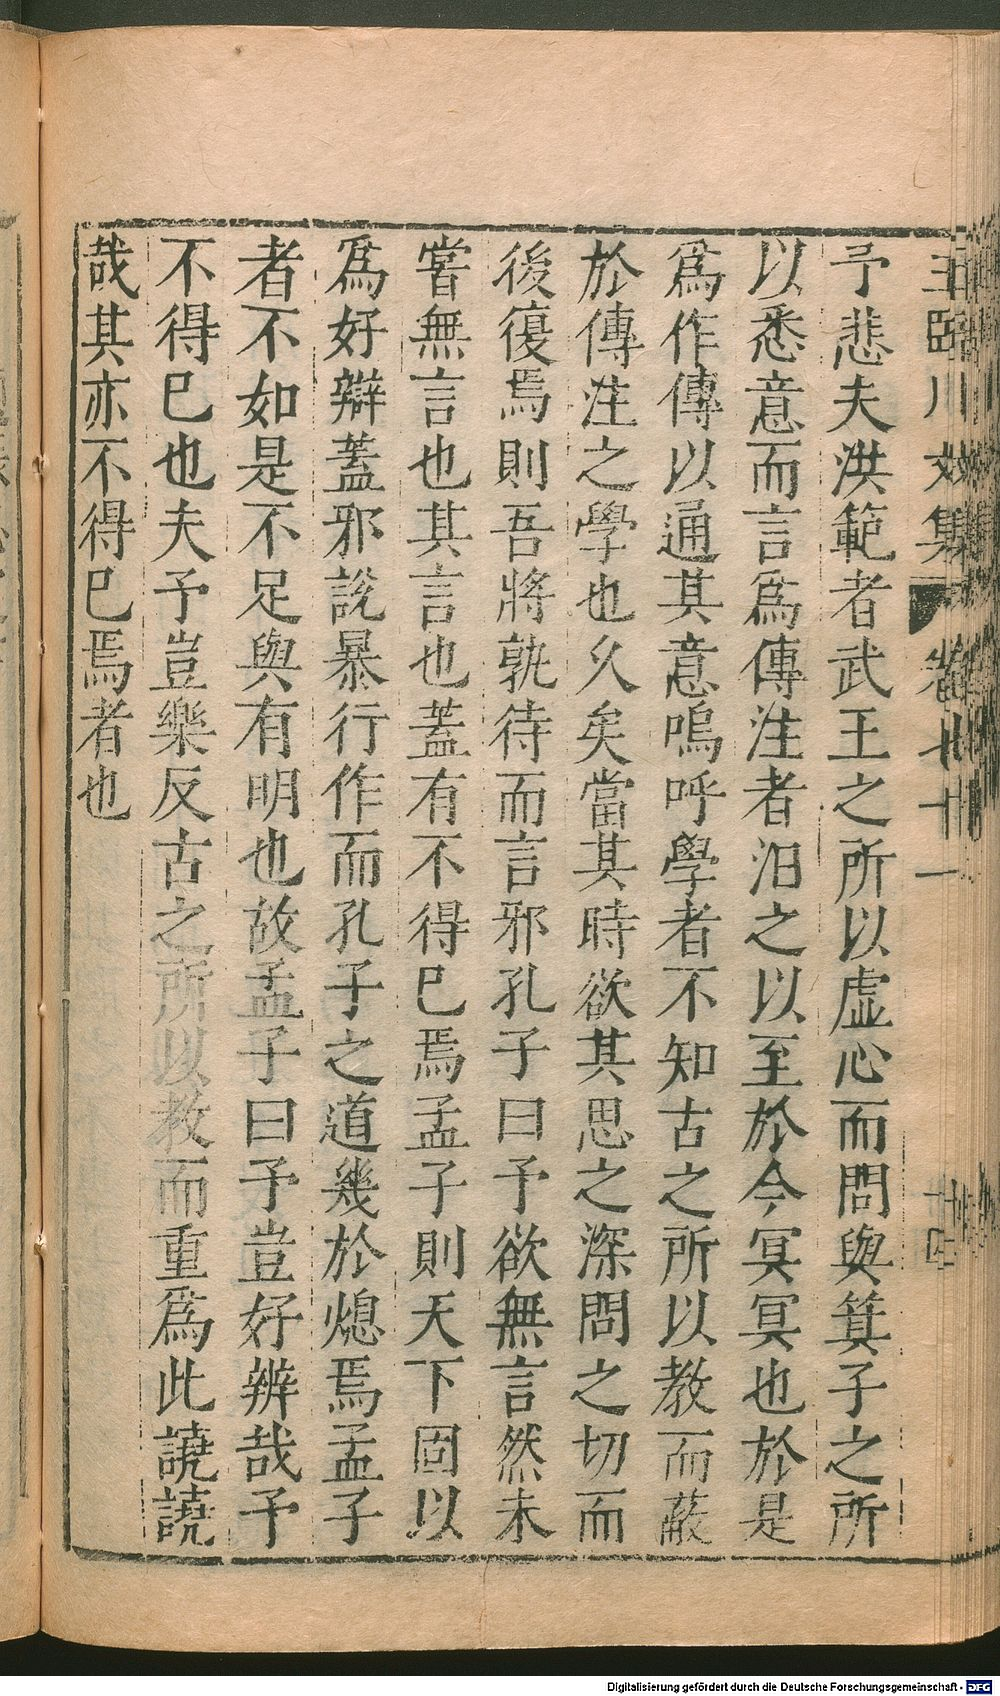 王臨川文集
卷七十一
十四
予悲夫洪範者武王之所以虛心而問與箕子之所
以悉意而言爲傳注者汨之以至於今冥冥也於是
爲作傳以通其意嗚呼學者不知古之所以教而蔽
於傳注之學也久矣當其時欲其思之深問之切而
後復焉則吾將孰待而言邪孔子曰予欲無言然未
嘗無言也其言也蓋有不得已焉孟子則天下固以
爲好辯蓋邪說暴行作而孔子之道幾於熄焉孟子
者不如是不足與有明也故孟子曰予豈好辨哉予
不得已也夫予豈樂反古之所以教而重爲此譊譊
哉其亦不得已焉者也
Digitalisierung gefördert durch die Deutsche Forschungsgemeinschaft - DFG